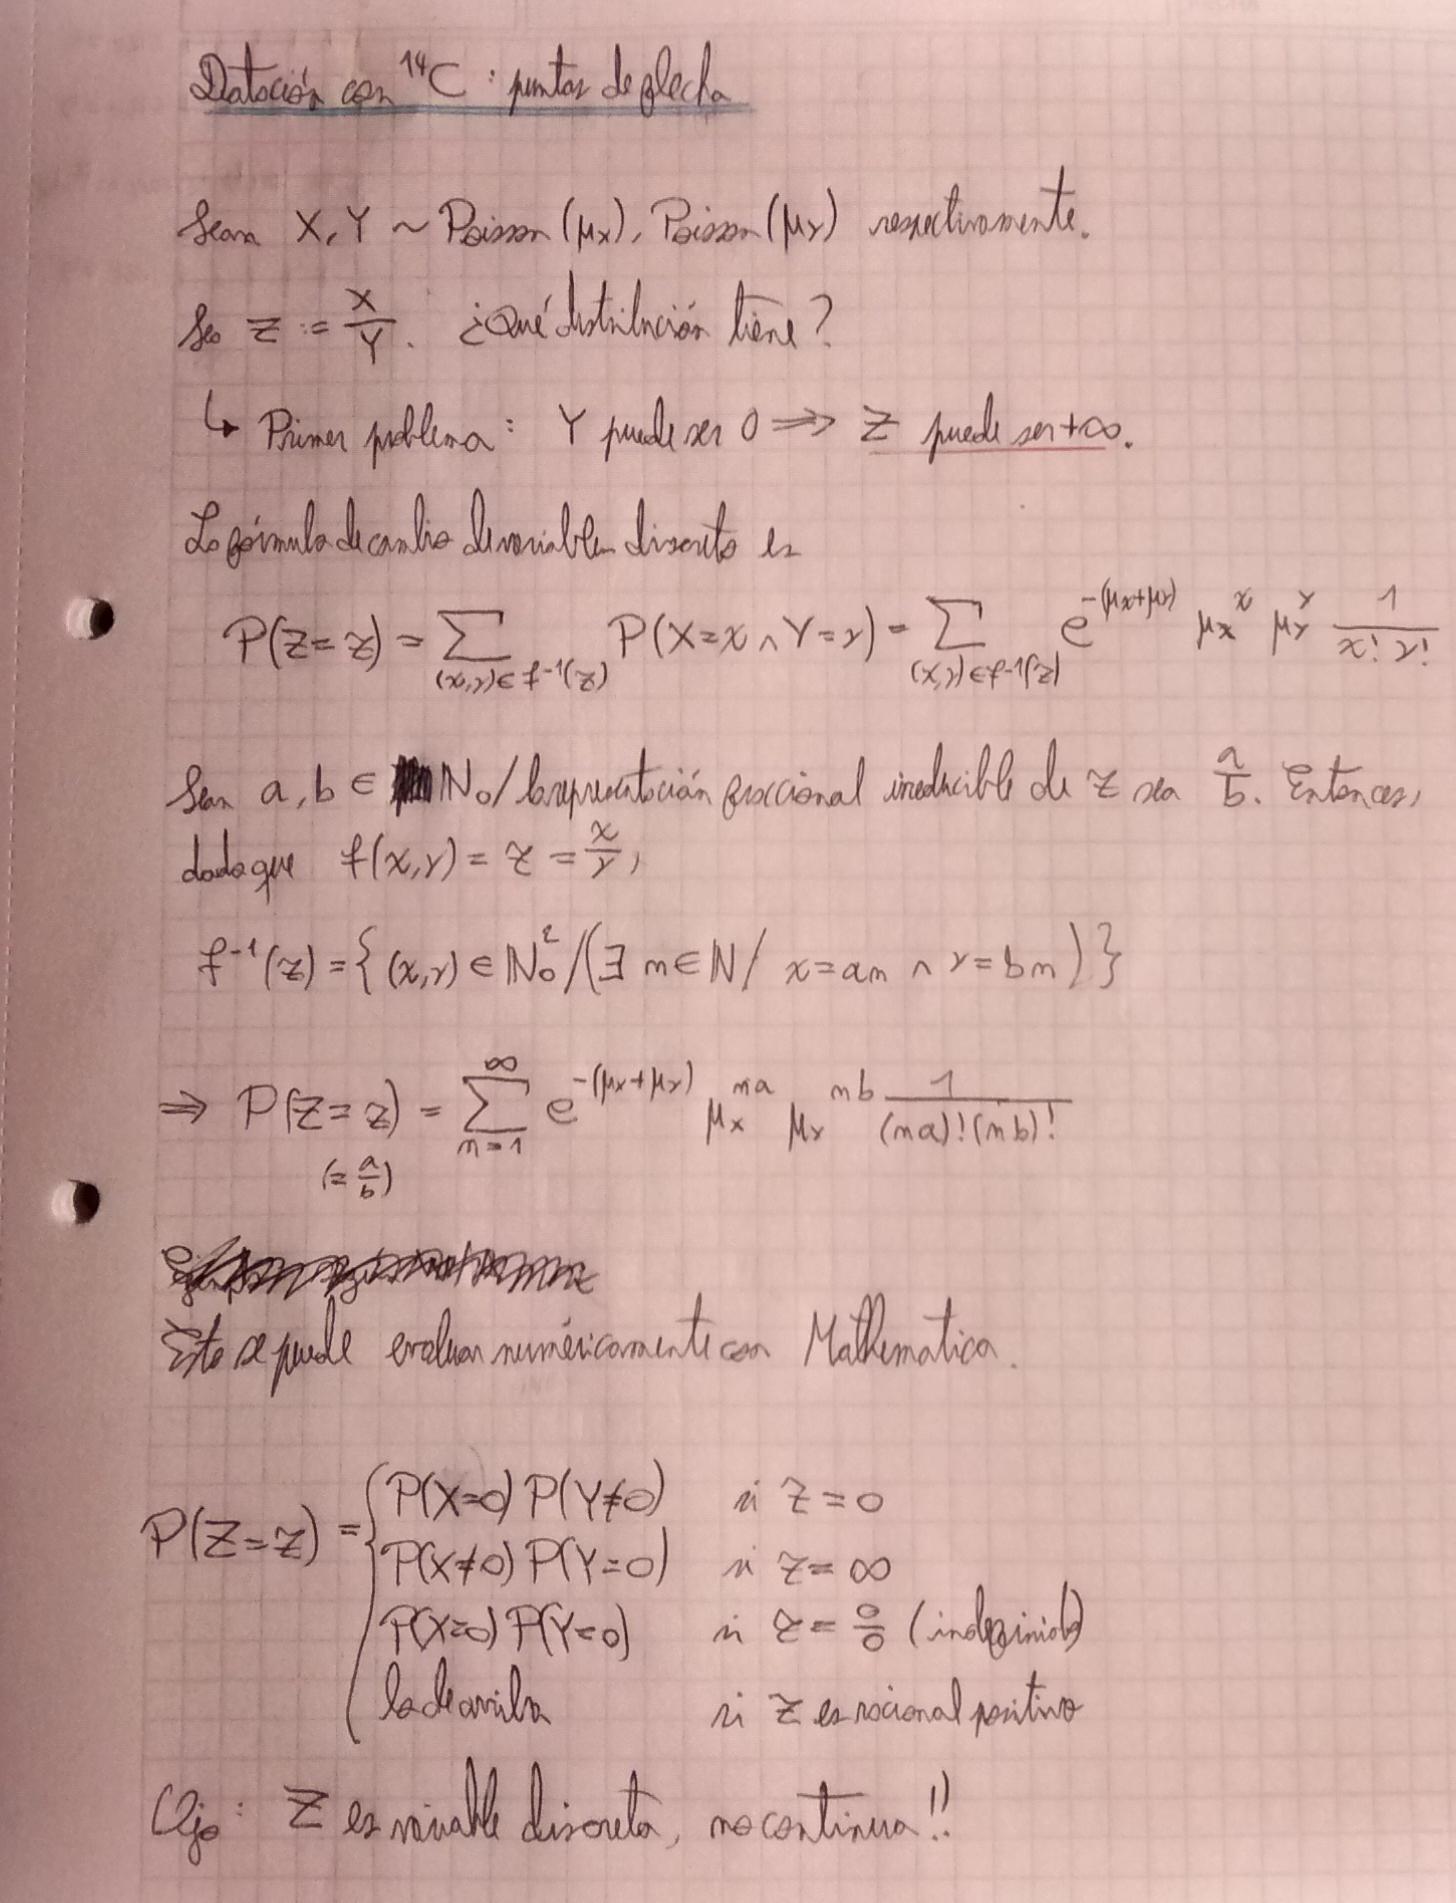 Datación con ¹⁴C : puntas de flecha
Sean X, Y ~ Poisson(μx), Poisson(μy) respectivamente.
Sea Z := X/Y. ¿Qué distribución tiene?
↳ Primer problema: Y puede ser 0 ⟹ Z puede ser +∞.
La fórmula de cambio de variables discreto es
P(Z=z) = ∑_{(x,y)∈f⁻¹(z)} P(X=x ∧ Y=y) = ∑_{(x,y)∈f⁻¹(z)} e^{-(μx+μy)} μx^x μy^y 1/(x! y!)
Sean a, b ∈ ℕ₀ / la representación fraccional irreducible de z sea a/b. Entonces,
dado que f(x,y) = z = x/y,
f⁻¹(z) = { (x,y) ∈ ℕ₀² / (∃ n∈ℕ / x=an ∧ y=bn) }
⟹ P(Z=z) = ∑_{n=1}^{∞} e^{-(μx+μy)} μx^{na} μy^{nb} 1/((na)!(nb)!)
(= a/b)
Esto se puede evaluar numéricamente con Mathematica.
P(Z=z) = { P(X=0) P(Y≠0) si z=0
P(X≠0) P(Y=0) si z=∞
P(X=0) P(Y=0) si z=0/0 (indefinido)
la de arriba si z es racional positivo
Ojo: Z es variable discreta, no continua!!